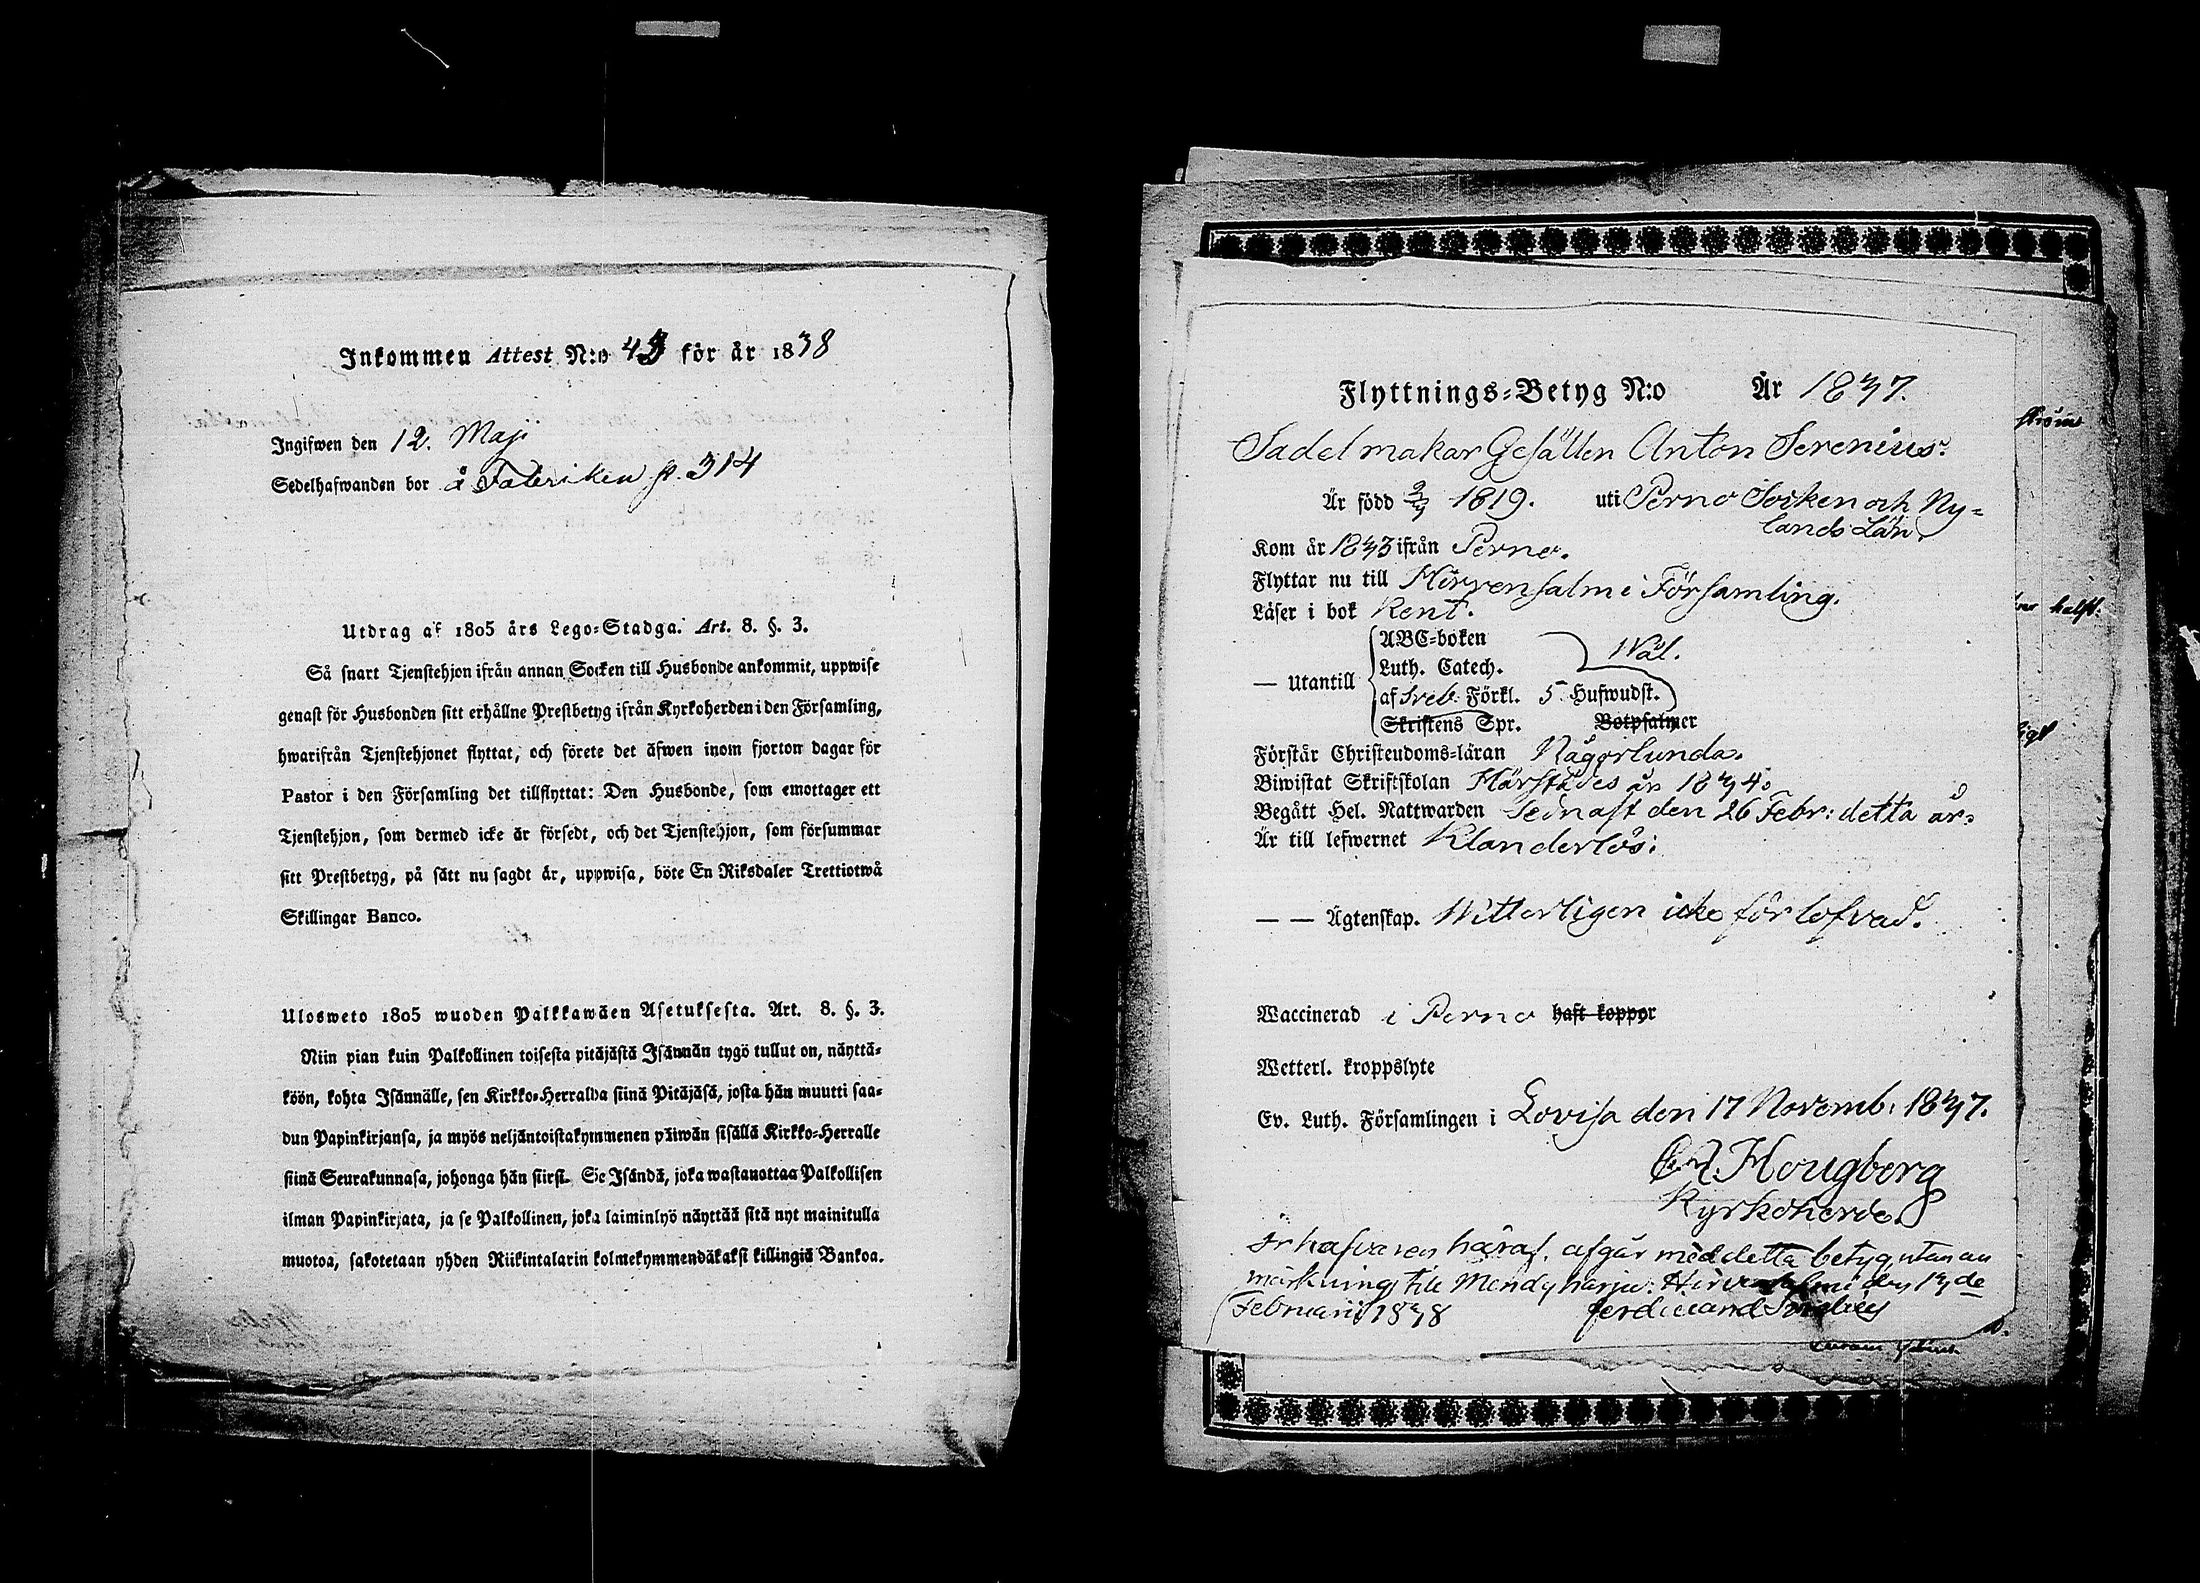 Inkommen Attest N:o 43 för år 1838
Ingifwen den 12. Maji
Sedelhafwanden bor å Fabriken p. 314
Utdrag af 1805 års Lego-Stadga. Art. 8. §. 3.
Så snart Tjenstehjon ifrån annan Socken till Husbonde ankommit, uppwise
genast för Husbonden sitt erhållne Prestbetyg ifrån Kyrkoherden i den Församling,
hwarifrån Tjenstehjonet flyttat, och förete det äfwen inom fjorton dagar för
Pastor i den Församling det tillflyttat: Den Husbonde, som emottager ett
Tjenstehjon, som dermed icke är försedt, och det Tjenstehjon, som försummar
sitt Prestbetyg, på sätt nu sagdt är, uppwisa, böte En Riksdaler Trettiotwå
Skillingar Banco.
Ulosweto 1805 wuoden Palkkawäen Asetuksesta. Art. 8. §. 3.
Niin pian kuin Palkollinen toisesta pitäjästä Isännän tygö tullut on, näyttä-
köön, kohta Isännälle, sen Kirkko-Herralda siinä Pitäjäsä, josta hän muutti saa-
dun Papinkirjansa, ja myös neljäntoistakymmenen päiwän sisällä Kirkko-Herralle
siinä Seurakunnasa, johonga hän siirsi. Se Isändä, joka wastanottaa Palkollisen
ilman Papinkirjata, ja se Palkollinen, joka laiminlyö näyttää sitä nyt mainitulla
muotoa, sakotetaan yhden Riikintalarin kolmekymmendäkaksi killingiä Bankoa.
Flyttnings-Betyg N:o År 1837.
Sadelmakar Gesällen Anton Serenius.
Är född 1819. uti Perno Socken och Ny-
lands Län.
Kom år 1833 ifrån Perno.
Flyttar nu till Hirvensalmi Församling.
Läser i bok Rent.
ABC-boken
Luth. Catech. Wäl.
— Utantill
af Sveb. Förkl. 5 Hufwudst.
Skriftens Spr. Botpsalmer
Förstår Christendoms-läran Någorlunda.
Biwistat Skriftskolan Härstädes år 1834.
Begått Hel. Nattwarden Sednast den 26 Febr: detta år.
Är till lefwernet Klanderlös:
— — Ägtenskap. Witterligen icke förlofvad.
Waccinerad i Perno haft koppor
Wetterl. kroppslyte
Ev. Luth. Församlingen i Lovisa den 17 Novemb: 1837.
Hougberg
Kyrkoherde.
häraf, afgår med detta betyg utan an
märkning till Mändyharju: Hirvensalmi den
Februarii 1838 Ferdinand
ström
halft.